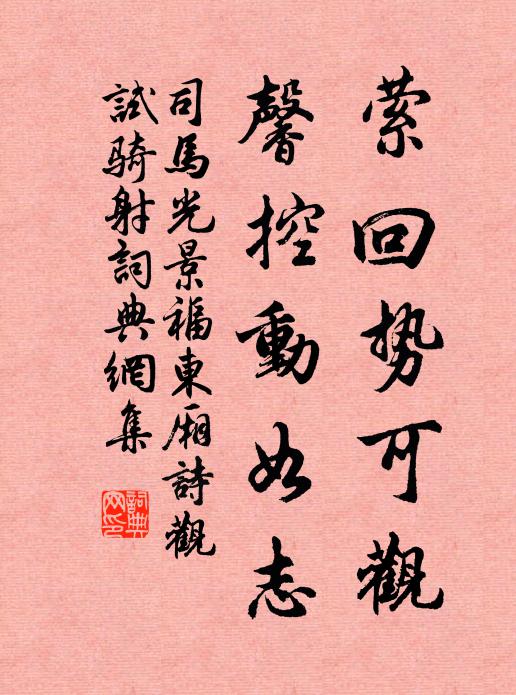 萦回势可觀
馨控動如志
司馬光景福東厢詩觀
試騎射詞典網集
詞典
网印